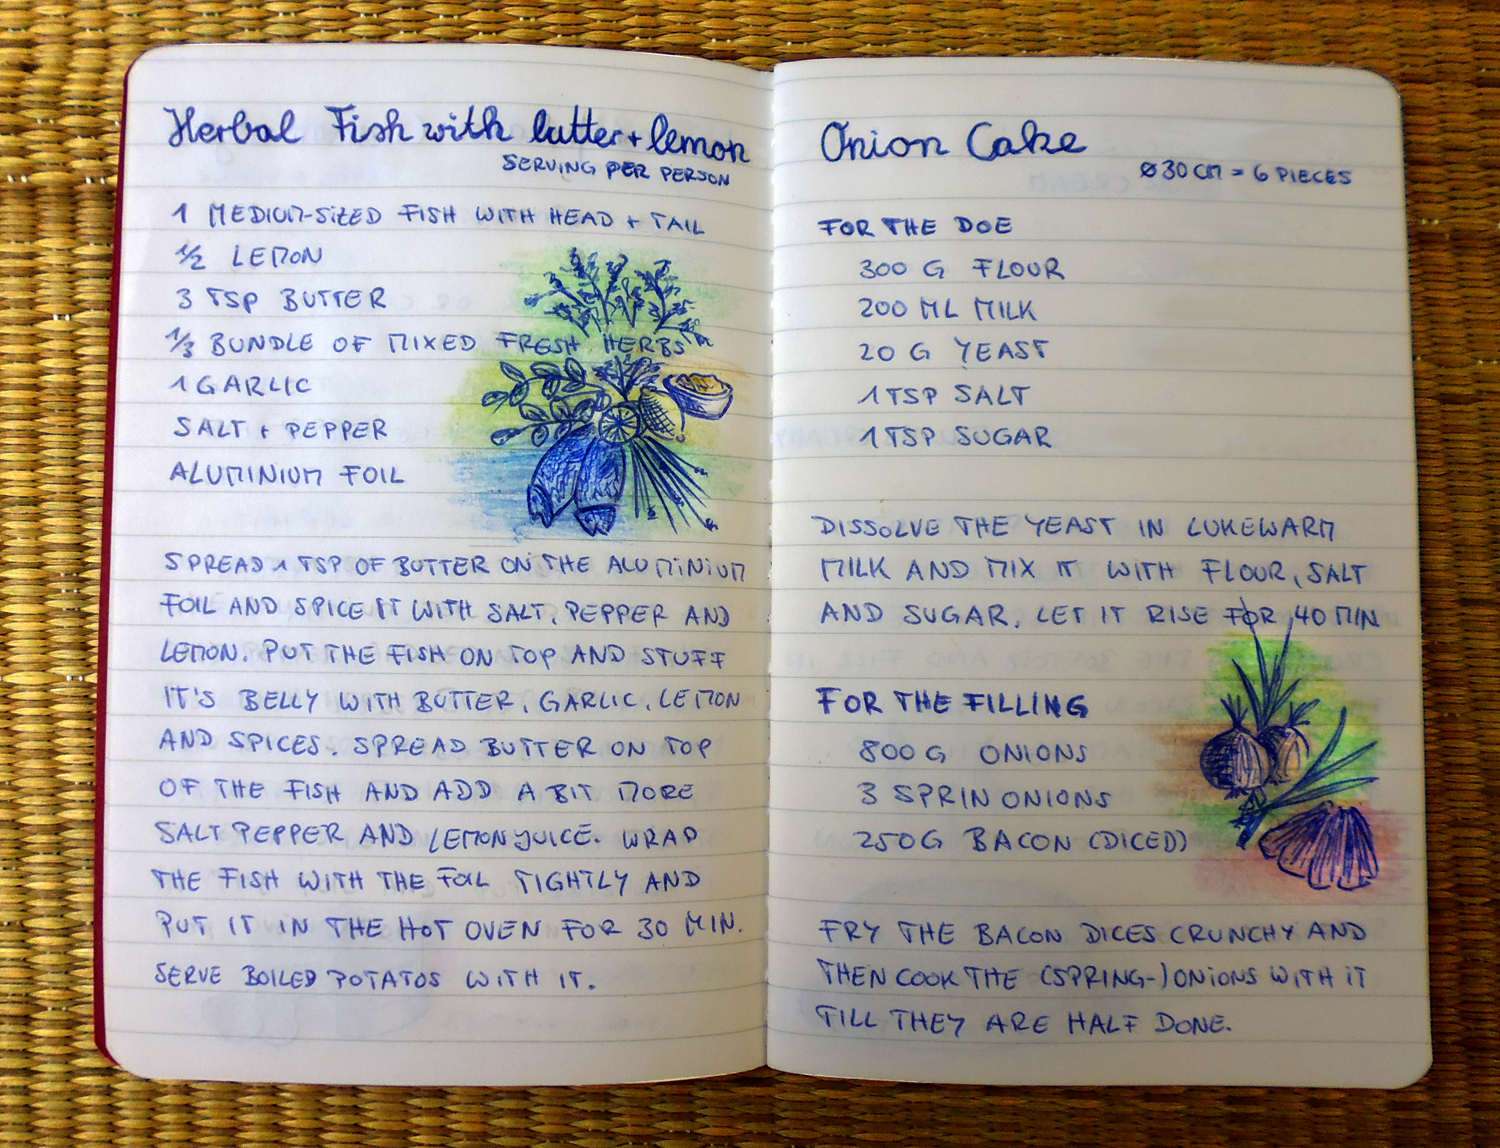 Herbal Fish with butter + lemon
SERVING PER PERSON
1 MEDIUM-SIZED FISH WITH HEAD + TAIL
1/2 LEMON
3 TSP BUTTER
1/3 BUNDLE OF MIXED FRESH HERBS
1 GARLIC
SALT + PEPPER
ALUMINIUM FOIL
SPREAD 1 TSP OF BUTTER ON THE ALUMINIUM
FOIL AND SPICE IT WITH SALT, PEPPER AND
LEMON. PUT THE FISH ON TOP AND STUFF
IT'S BELLY WITH BUTTER, GARLIC, LEMON
AND SPICES. SPREAD BUTTER ON TOP
OF THE FISH AND ADD A BIT MORE
SALT PEPPER AND LEMONJUICE. WRAP
THE FISH WITH THE FOIL TIGHTLY AND
PUT IT IN THE HOT OVEN FOR 30 MIN.
SERVE BOILED POTATOS WITH IT.
Onion Cake
Ø 30 CM = 6 PIECES
FOR THE DOE
300 G FLOUR
200 ML MILK
20 G YEAST
1 TSP SALT
1 TSP SUGAR
DISSOLVE THE YEAST IN LUKEWARM
MILK AND MIX IT WITH FLOUR, SALT
AND SUGAR. LET IT RISE FOR 40 MIN
FOR THE FILLING
800 G ONIONS
3 SPRIN ONIONS
250G BACON (DICED)
FRY THE BACON DICES CRUNCHY AND
THEN COOK THE (SPRING-)ONIONS WITH IT
TILL THEY ARE HALF DONE.